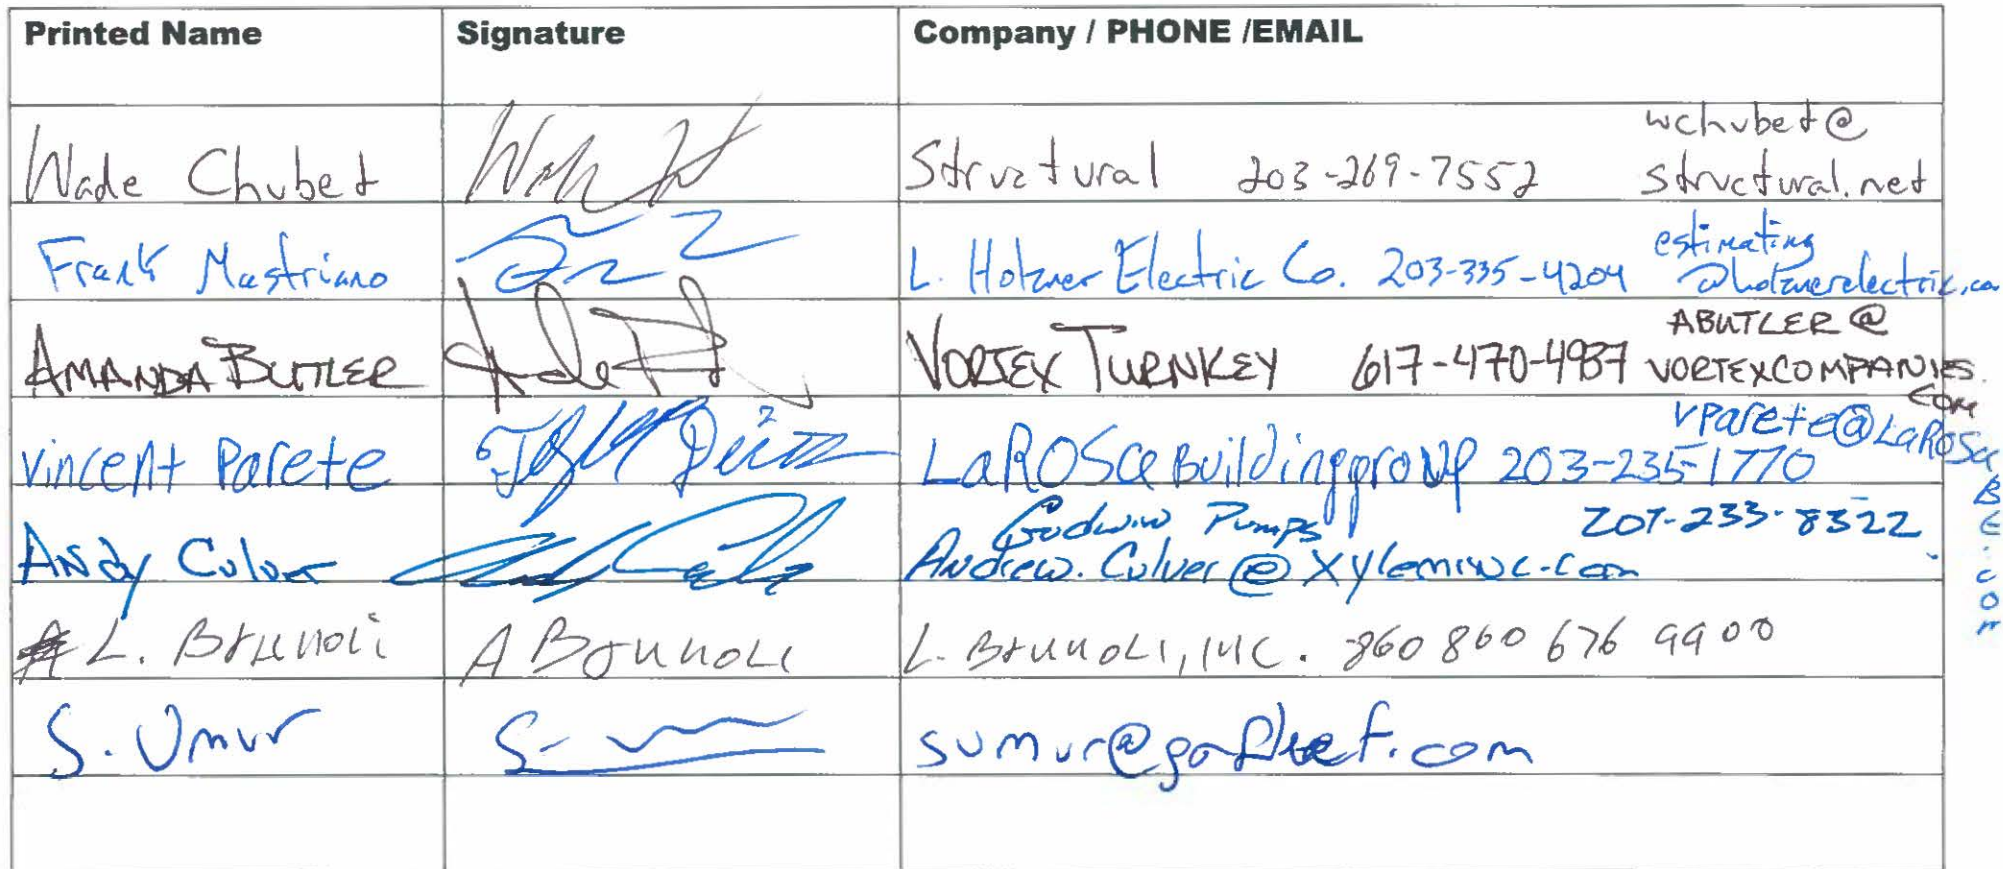 Printed Name Signature Company / PHONE /EMAIL
Wade Chubet Structural 203-269-7552 wchubet@
structural.net
Frank Mastriano L. Holzner Electric Co. 203-335-4204 estimating
@holznerelectric.co
AMANDA BUTLER VORTEX TURNKEY 617-470-4987 ABUTLER@
VORTEXCOMPANIES.
COM
Vincent Parete LaROSa Buildinggroup 203-235-1770 vparete@LaROSa
BG.com
Andy Culver Godwin Pumps 207-233-8322
Andrew.Culver@xyleminc.com
L. Brunoli A Brunoli L. Brunoli, INC. 860 860 676 9900
S. Umur sumur@gofleet.com